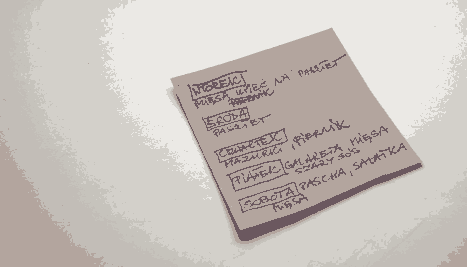 WTOREK
MIĘSA UPIEC NA PASZTET
ŚRODA
PASZTET
CZWARTEK
MAZURKI, PIERNIK
PIĄTEK GALARETA MIĘSA
SZARY SOS
SOBOTA PASCHA, SAŁATKA
MIĘSA